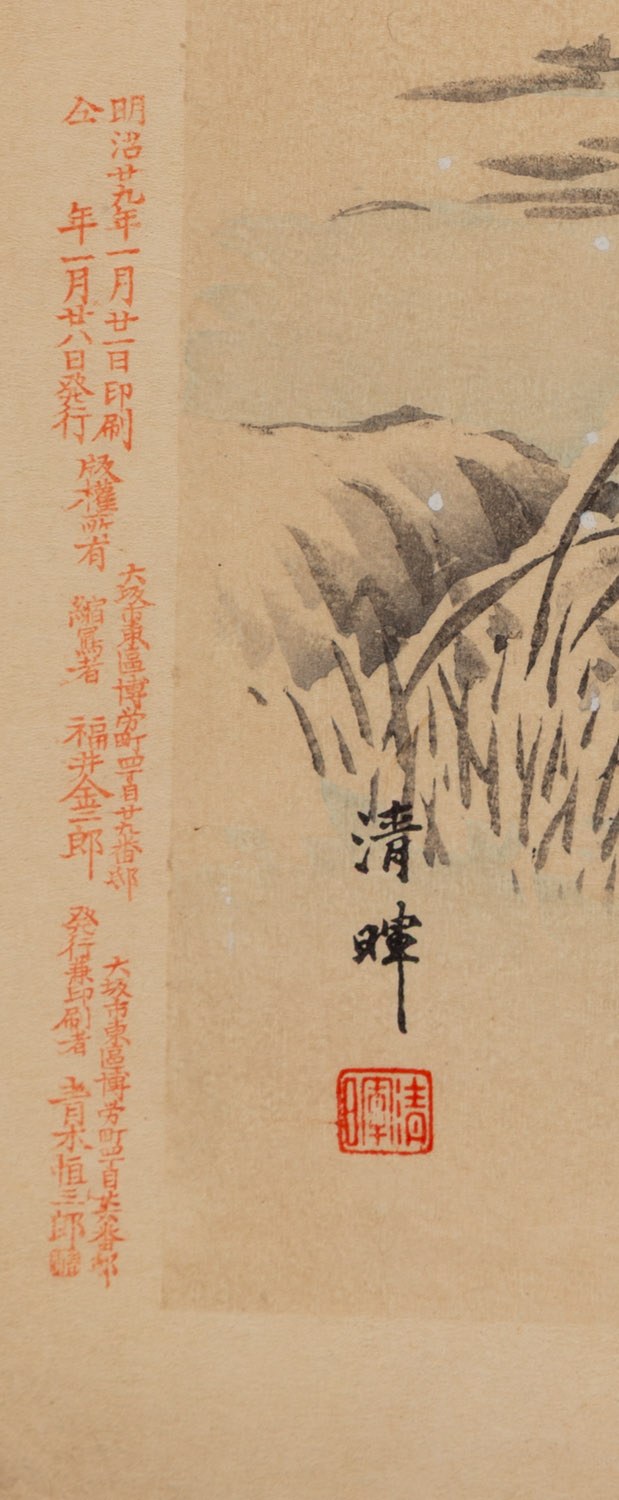 清暉
清暉
明治廿九年一月廿一日印刷
仝 年一月廿八日発行
版權所有
大坂市東區博労町四丁目廿九番邸
縮寫者 福井金二郎
大坂市東區博労町四丁目廿六番邸
発行兼印刷者 青木恒三郎